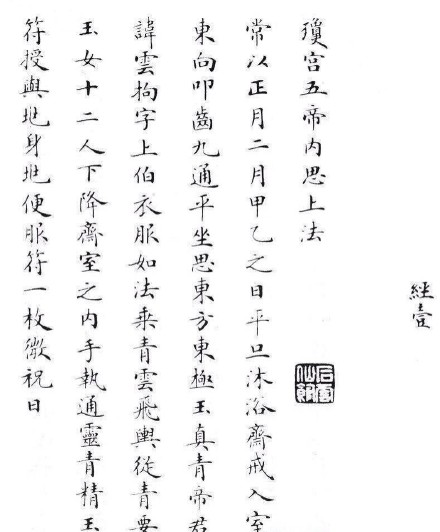 經壹
瓊宫五帝内思上法
常以正月二月甲乙之日平旦沐浴齋戒入室
東向叩齒九通平坐思東方東極玉真青帝君
諱雲拘字上伯衣服如法乗青雲飛輿從青要
玉女十二人下降齋室之内手執通靈青精玉
符授與兆身兆便服符一枚微祝曰